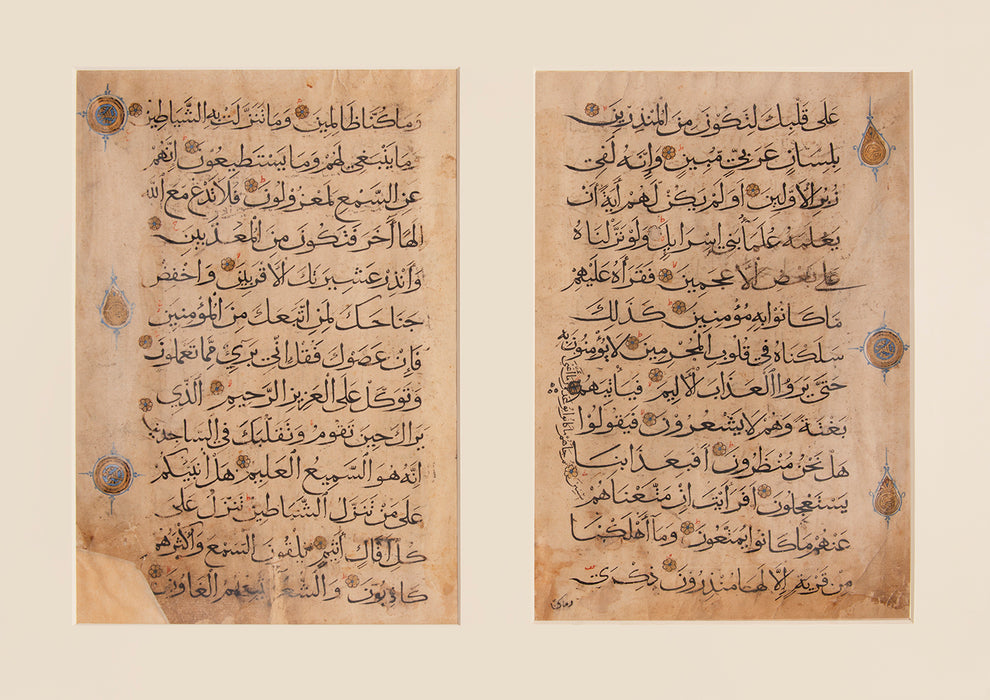 على قلبك لتكون من المنذرين
بلسان عربي مبين وإنه لفي
زبر الأولين أولم يكن لهم آية أن
يعلمه علماء بني إسرايل ولو نزلناه
على بعض الأعجمين فقرأه عليهم
ما كانوا به مؤمنين كذلك
سلكناه في قلوب المجرمين لا يؤمنون به
حتى يروا العذاب الأليم فيأتيهم
بغتة وهم لا يشعرون فيقولوا
هل نحن منظرون أفبعذابنا
يستعجلون أفرأيت إن متعناهم
سنين ثم جاءهم ما كانوا يوعدون ما أغنى
عنهم ما كانوا يمتعون وما أهلكنا
من قرية إلا لها منذرون ذكرى
وما كنا
وما كنا ظالمين وما تنزلت به الشياطين
وما ينبغي لهم وما يستطيعون إنهم
عن السمع لمعزولون فلا تدع مع الله
إلها آخر فتكون من المعذبين
وأنذر عشيرتك الأقربين واخفض
جناحك لمن اتبعك من المؤمنين
فإن عصوك فقل إني بريء مما تعملون
وتوكل على العزيز الرحيم الذي
يراك حين تقوم وتقلبك في الساجدين
إنه هو السميع العليم هل أنبئكم
على من تنزل الشياطين تنزل على
كل أفاك أثيم يلقون السمع وأكثرهم
كاذبون والشعراء يتبعهم الغاوون